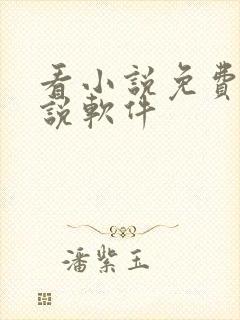 看小說免費
說軟件
潘紫玉